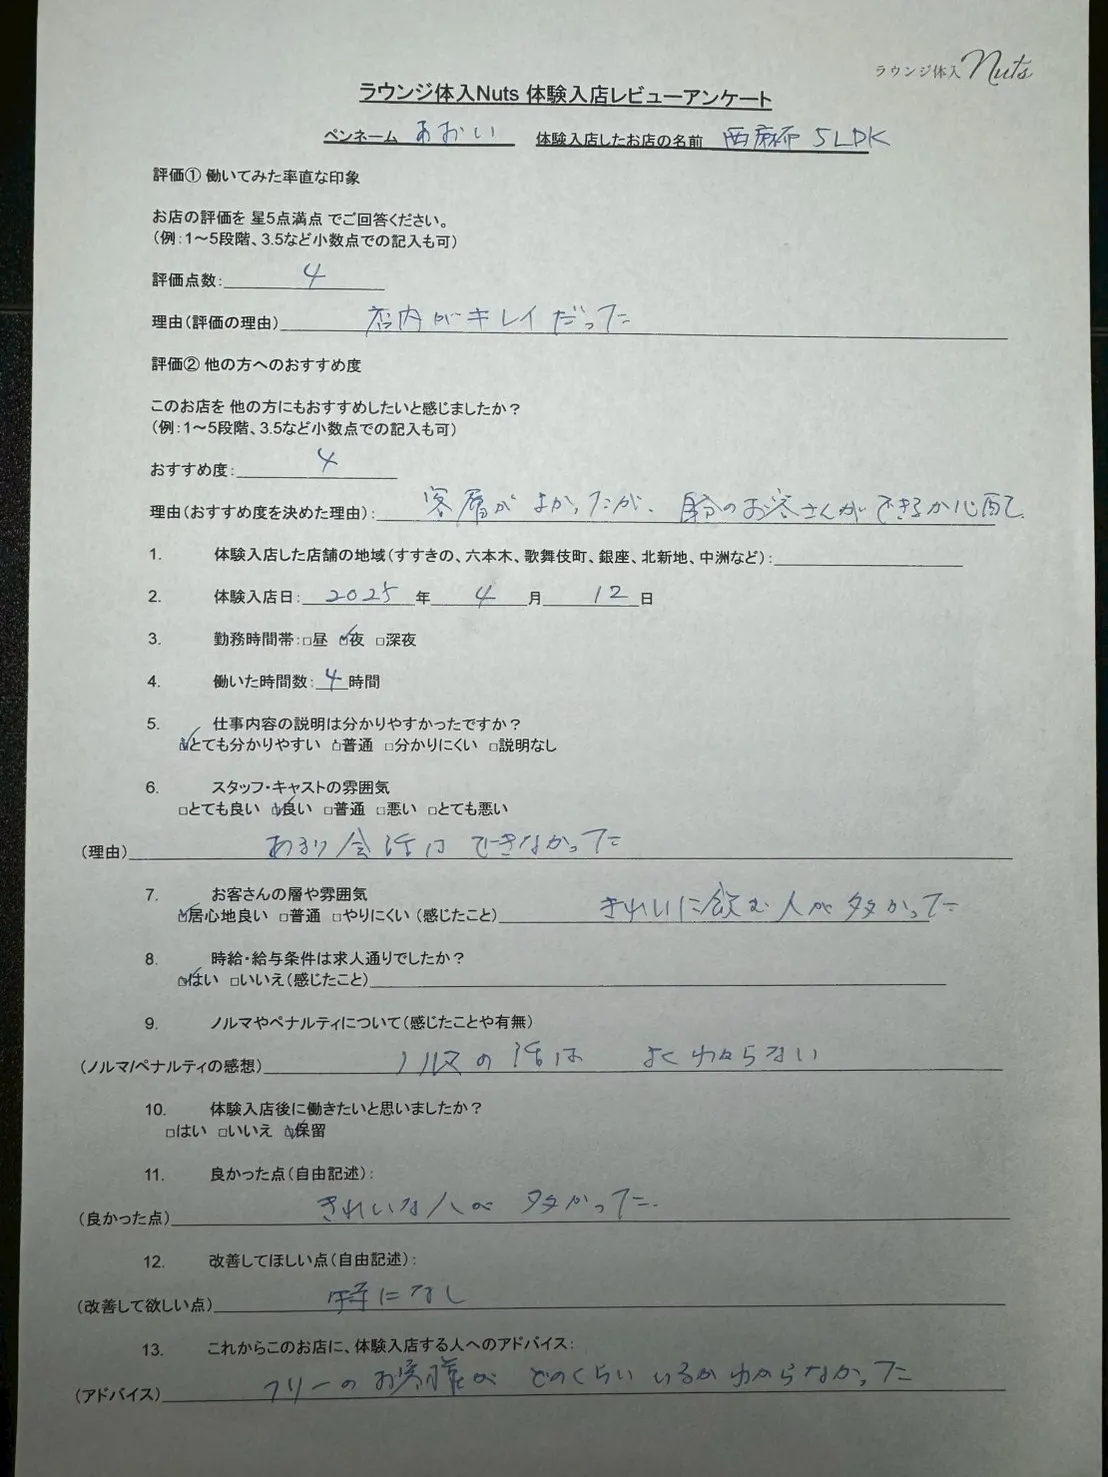 ラウンジ体入 Nuts
ラウンジ体入Nuts 体験入店レビューアンケート
ペンネーム あおい 体験入店したお店の名前 西麻布 5LDK
評価① 働いてみた率直な印象
お店の評価を 星5点満点 でご回答ください。
(例:1〜5段階、3.5など小数点での記入も可)
評価点数: 4
理由(評価の理由) 店内がキレイだった
評価② 他の方へのおすすめ度
このお店を 他の方にもおすすめしたいと感じましたか?
(例:1〜5段階、3.5など小数点での記入も可)
おすすめ度: 4
理由(おすすめ度を決めた理由): 客層がよかったが、自分のお客さんができるか心配で
1. 体験入店した店舗の地域(すすきの、六本木、歌舞伎町、銀座、北新地、中洲など):
2. 体験入店日: 2025 年 4 月 12 日
3. 勤務時間帯:□昼 ☑夜 □深夜
4. 働いた時間数: 4 時間
5. 仕事内容の説明は分かりやすかったですか?
☑とても分かりやすい □普通 □分かりにくい □説明なし
6. スタッフ・キャストの雰囲気
□とても良い ☑良い □普通 □悪い □とても悪い
(理由) あまり会話はできなかった
7. お客さんの層や雰囲気
☑居心地良い □普通 □やりにくい (感じたこと) きれいに飲む人が多かった
8. 時給・給与条件は求人通りでしたか?
☑はい □いいえ(感じたこと)
9. ノルマやペナルティについて(感じたことや有無)
(ノルマ/ペナルティの感想) ノルマの話は よくわからない
10. 体験入店後に働きたいと思いましたか?
□はい □いいえ ☑保留
11. 良かった点(自由記述):
(良かった点) きれいな人が多かった.
12. 改善してほしい点(自由記述):
(改善して欲しい点) 特になし
13. これからこのお店に、体験入店する人へのアドバイス:
(アドバイス) フリーのお客様がどのくらいいるかわからなかった